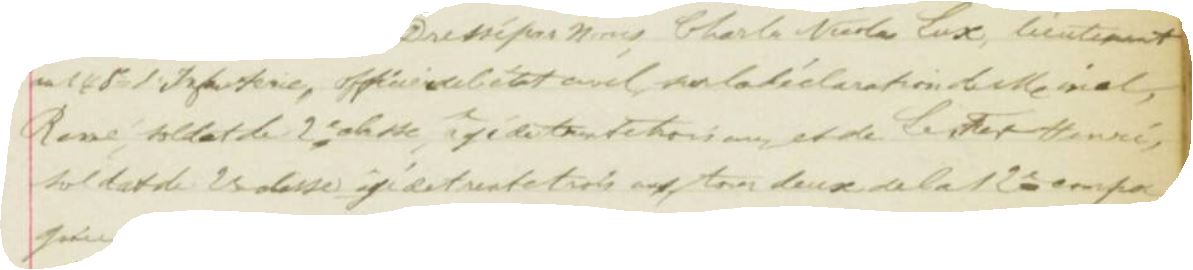 Dressé par Nous, Charles Nicolas Lux, lieutenant
au 148e d'Infanterie, officier de l'état civil, sur la déclaration de
René, soldat de 2e classe, âgé de trente trois ans, et de Le Fer Henri,
soldat de 2e classe âgé de trente trois ans, tous deux de la 12e compa
gnie